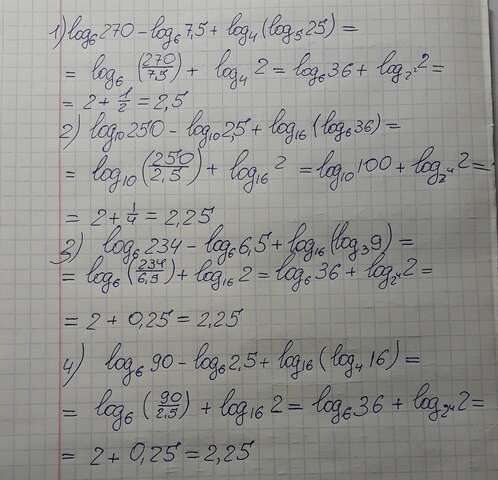 1) log₆270 - log₆7,5 + log₄(log₅25) =
= log₆(270/7,5) + log₄2 = log₆36 + log₂²2 =
= 2 + 1/2 = 2,5
2) log₁₀250 - log₁₀2,5 + log₁₆(log₆36) =
= log₁₀(250/2,5) + log₁₆2 = log₁₀100 + log₂⁴2 =
= 2 + 1/4 = 2,25
3) log₆234 - log₆6,5 + log₁₆(log₃9) =
= log₆(234/6,5) + log₁₆2 = log₆36 + log₂⁴2 =
= 2 + 0,25 = 2,25
4) log₆90 - log₆2,5 + log₁₆(log₄16) =
= log₆(90/2,5) + log₁₆2 = log₆36 + log₂⁴2 =
= 2 + 0,25 = 2,25